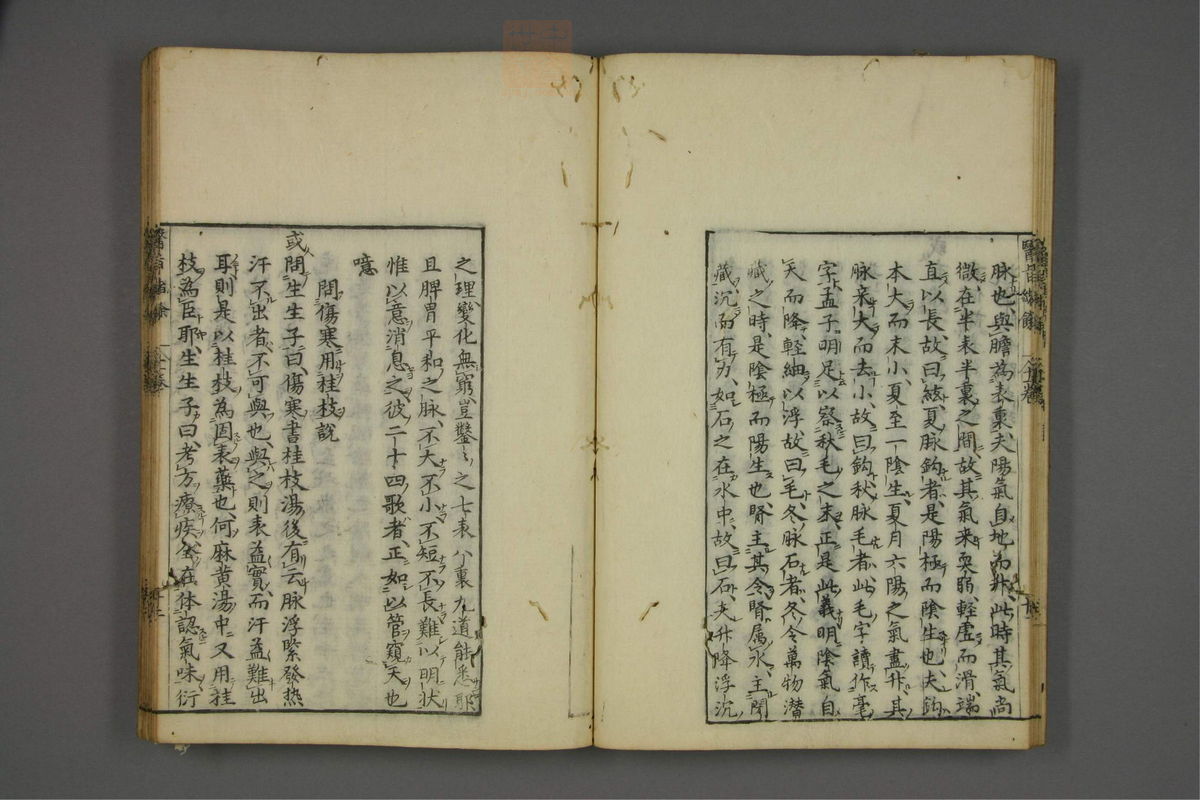 脉也與膽為表裏夫陽氣自地而升此時其氣尚
微在半表半裏之間故其氣来耎弱輕虛而滑端
直以長故曰絃夏脉鈎者是陽極而陰生也夫鈎
本大而末小夏至一陰生夏月六陽之氣盡升其
脉来大而去小故曰鈎秋脉毛者此毛字讀作毫
字孟子明足以察秋毛之末正是此義明陰氣自
天而降輕細以浮故曰毛冬脉石者冬令萬物潜
藏之時是陰極而陽生也腎主其令腎属水主閉
藏沉而有力如石之在水中故曰石夫升降浮沉
之理變化無窮豈鑿之七表八裏九道能悉耶
且脾胃平和之脉不大不小不短不長難以明状
惟以意消息之彼二十四歌者正如以管窺天也
噫
問傷寒用桂枝說
或問生生子曰傷寒書桂枝湯後有云脉浮緊發熱
汗不出者不可與也與之則表益實而汗益難出
耳則是以桂枝為固表藥也何麻黄湯中又用桂
枝為臣耶生生子曰考方療疾全在体認氣味衍